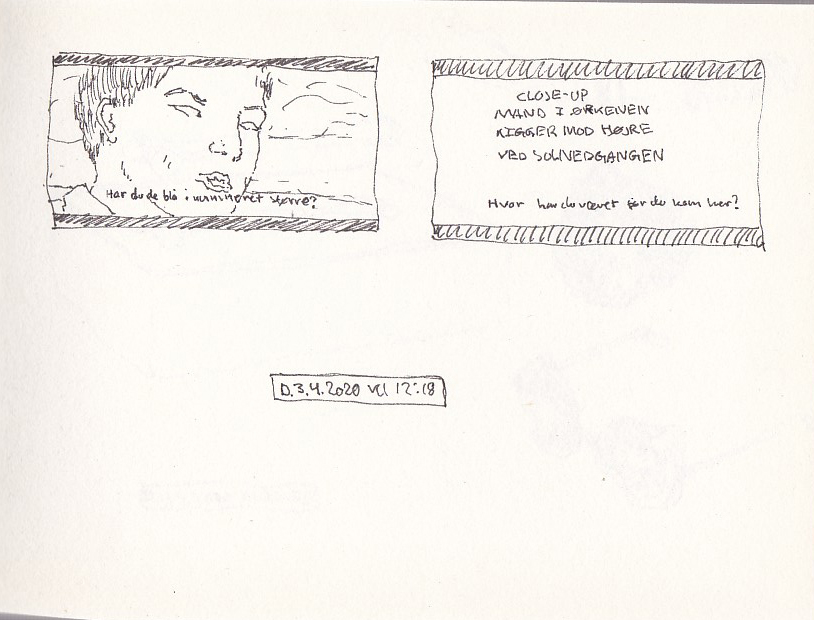 Har du de blå i mineret større?
CLOSE-UP
MAND I ØRKENEN
KIGGER MOD HØJRE
VED SOLNEDGANGEN
Hvor har du været før du kom her?
D.3.4.2020 kl 12:18